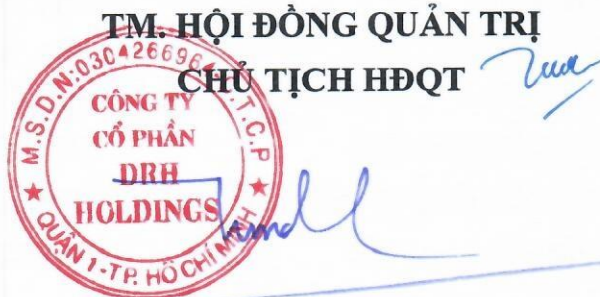 TM. HỘI ĐỒNG QUẢN TRỊ
CHỦ TỊCH HĐQT
M.S.D.N:0304266964 C.T.C.P
CÔNG TY
CỔ PHẦN
DRH
HOLDINGS
QUẬN 1-T.P. HỒ CHÍ MINH